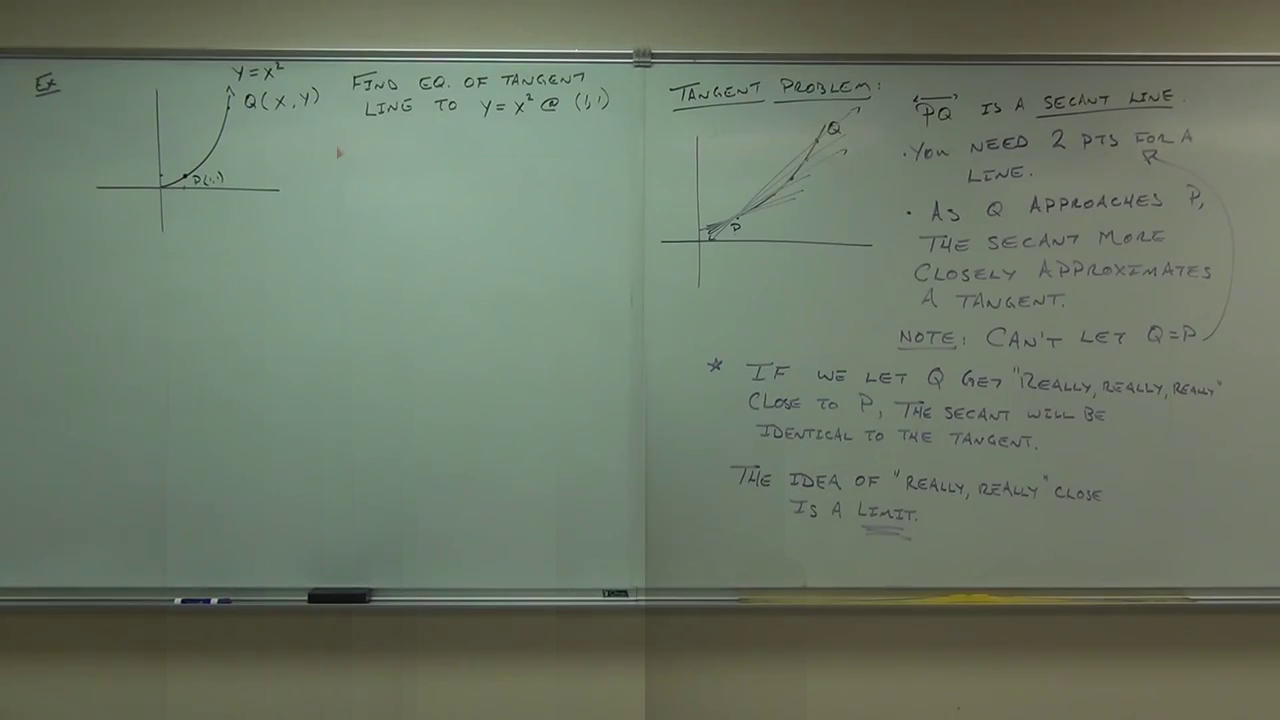 Ex
Y = X²
Q(X, Y)
P(1,1)
FIND EQ. OF TANGENT
LINE TO Y = X² @ (1,1)
TANGENT PROBLEM:
Q
P
PQ IS A SECANT LINE.
· YOU NEED 2 PTS FOR A
LINE.
· AS Q APPROACHES P,
THE SECANT MORE
CLOSELY APPROXIMATES
A TANGENT.
NOTE: CAN'T LET Q=P
* IF WE LET Q GET "REALLY, REALLY, REALLY"
CLOSE TO P, THE SECANT WILL BE
IDENTICAL TO THE TANGENT.
THE IDEA OF "REALLY, REALLY" CLOSE
IS A LIMIT.